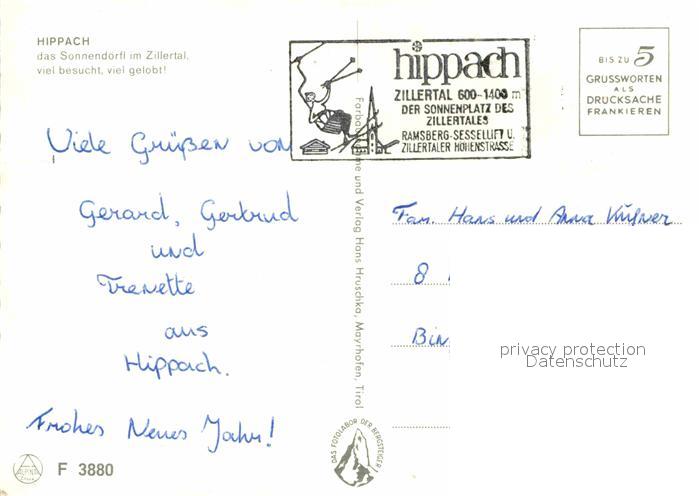 HIPPACH
das Sonnendörfl im Zillertal,
viel besucht, viel gelobt!
Viele Grüßen von
Gerard, Gertrud
und
Trenette
aus
Hippach.
Frohes Neues Jahr!
F 3880
hippach
ZILLERTAL 600-1400 m
DER SONNENPLATZ DES
ZILLERTALES
RAMSBERG-SESSELLIFT U.
ZILLERTALER HÖHENSTRASSE
und Verlag Hans Hruschka, Mayrhofen, Tirol
DAS FOTOLABOR DER BERGSTEIGER
BIS ZU 5
GRUSSWORTEN
ALS
DRUCKSACHE
FRANKIEREN
Fam. Hans und Anna
8
Bin
privacy protection
Datenschutz